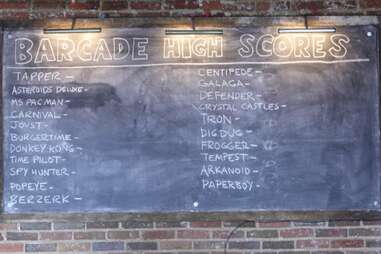 BARCADE HIGH SCORES
TAPPER -
ASTEROIDS DELUXE -
MS PACMAN -
CARNIVAL -
JOUST -
BURGERTIME -
DONKEY KONG -
TIME PILOT -
SPY HUNTER -
POPEYE -
BERZERK -
CENTIPEDE -
GALAGA -
DEFENDER -
CRYSTAL CASTLES -
TRON -
DIG DUG -
FROGGER -
TEMPEST -
ARKANOID -
PAPERBOY -